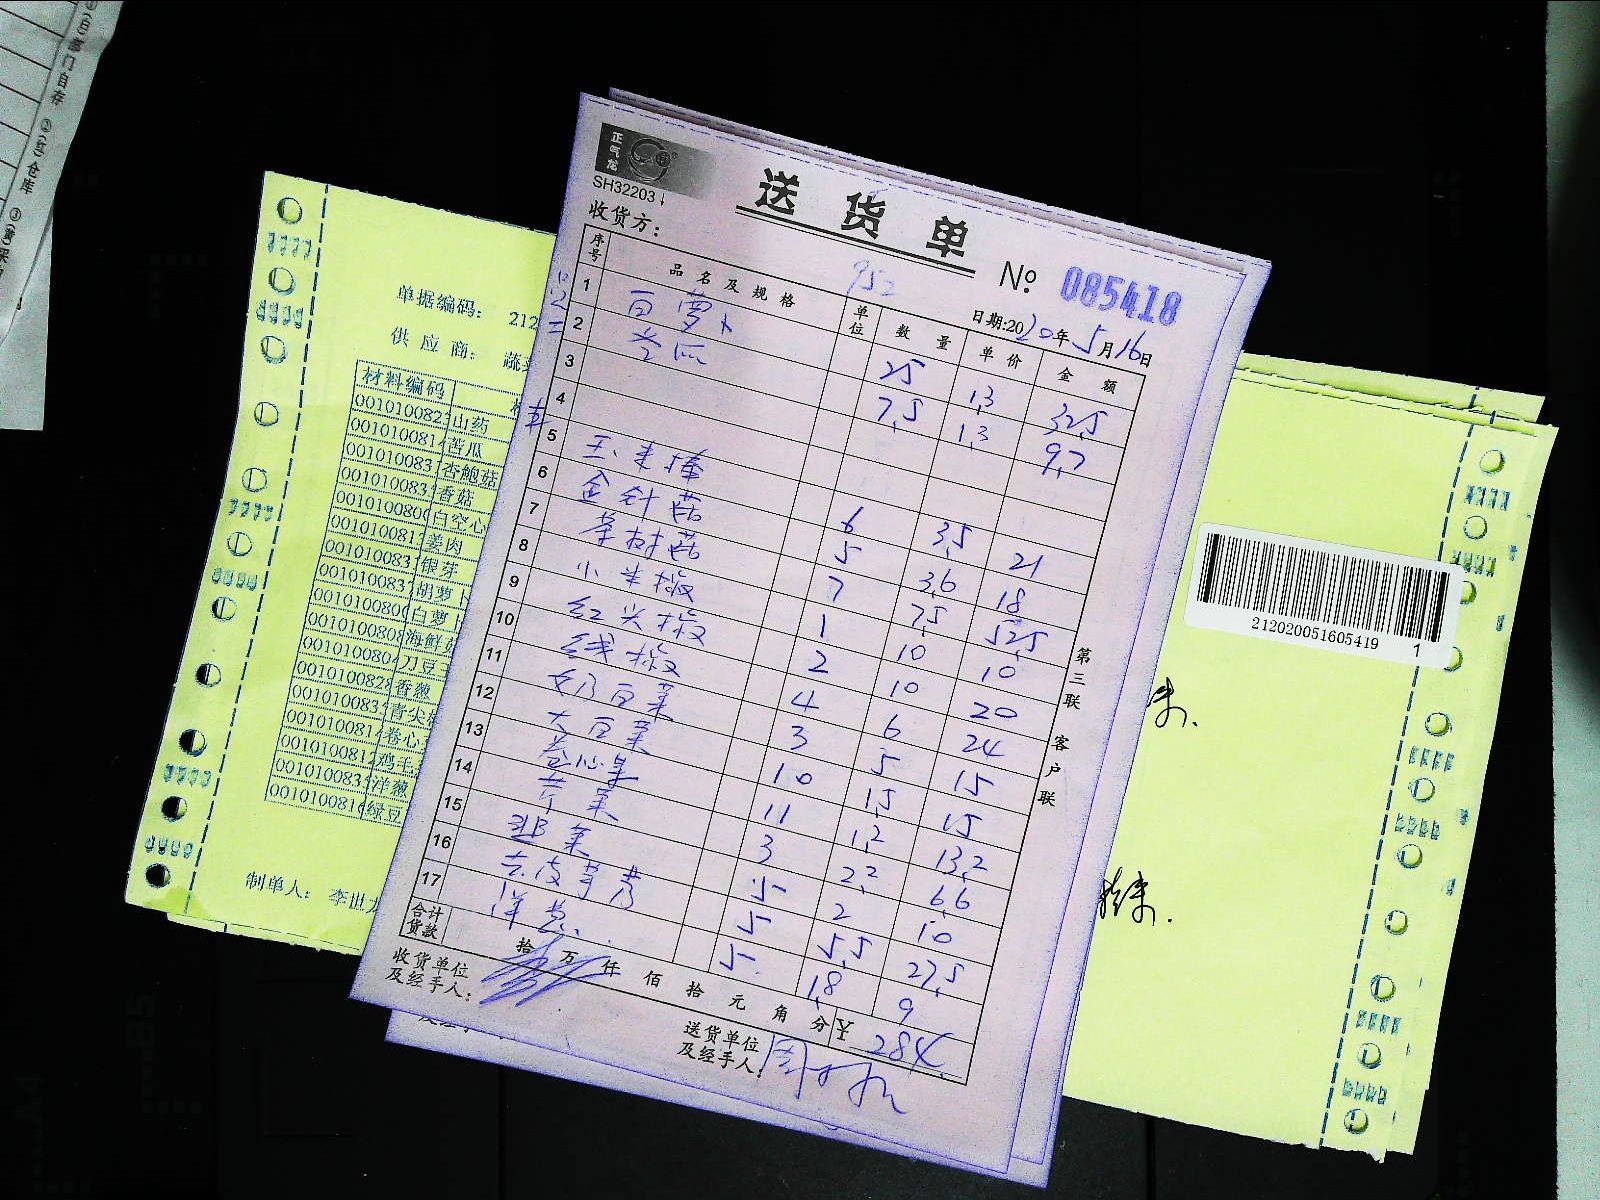 自存 ②(红)仓库 ③(黄)
正气龙
SH32203
送货单
收货方:
952
№ 085418
日期:2020年5月16日
序号 品名及规格 单位 数量 单价 金额
1 白萝卜 25 1.3 32.5
2 7.5 1.3 9.7
3
4
5 玉米棒 6 3.5 21
6 金针菇 5 3.6 18
7 茶树菇 7 7.5 52.5
8 小米椒 1 10 10
9 红尖椒 2 10 20
10 线椒 4 6 24
11 奶白菜 3 5 15
12 大白菜 10 1.5 15
13 卷心菜 11 1.2 13.2
14 芹菜 3 2.2 6.6
15 韭菜 5 2 10
16 去皮莴苣 5 5.5 27.5
17 洋葱 5 1.8 9
合计货款 拾 万 仟 佰 拾 元 角 分 ¥ 284
收货单位及经手人:
送货单位及经手人:
第三联 客户联
单据编码: 212
供应商: 蔬
材料编码
0010100823 山药
001010081 苦瓜
001010083 杏鲍菇
001010083 香菇
001010080 白空心
001010081 姜肉
001010083 银芽
001010083 胡萝卜
001010080 白萝卜
001010080 海鲜菇
001010080 刀豆
001010082 香葱
001010083 青尖
001010081 卷心
001010081 鸡毛
001010083 洋葱
001010081 绿豆
制单人: 李世龙
212020051605419 1